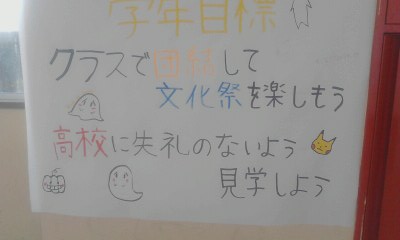 学年目標
クラスで団結して
文化祭を楽しもう
高校に失礼のないよう
見学しよう